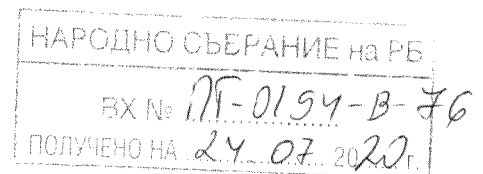 НАРОДНО СЪБРАНИЕ на РБ
ВХ № ПГ-0194-В-76
ПОЛУЧЕНО НА 24 07 2020 г.